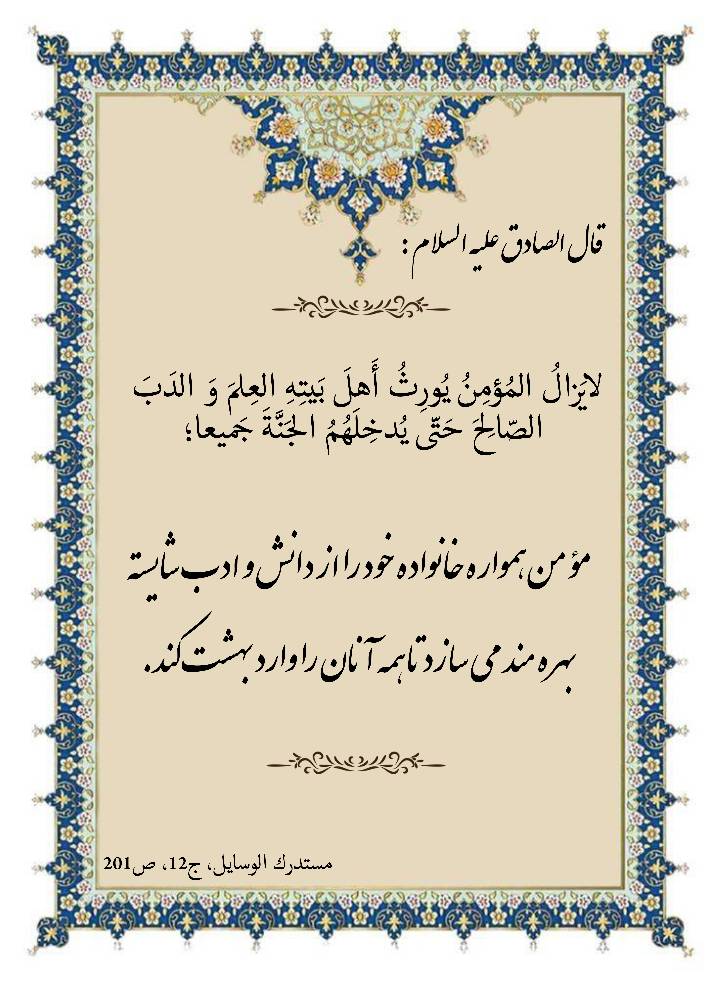 قال الصادق علیه السلام :
لایَزالُ المُؤمِنُ یُورِثُ أَهلَ بَیتِهِ العِلمَ وَ الدَبَ
الصّالِحَ حَتّی یُدخِلَهُمُ الجَنَّةَ جَمیعا؛
مؤمن همواره خانواده خود را از دانش و ادب شایسته
بهره مند می سازد تا همه آنان را وارد بهشت کند.
مستدرك الوسایل، ج12، ص201